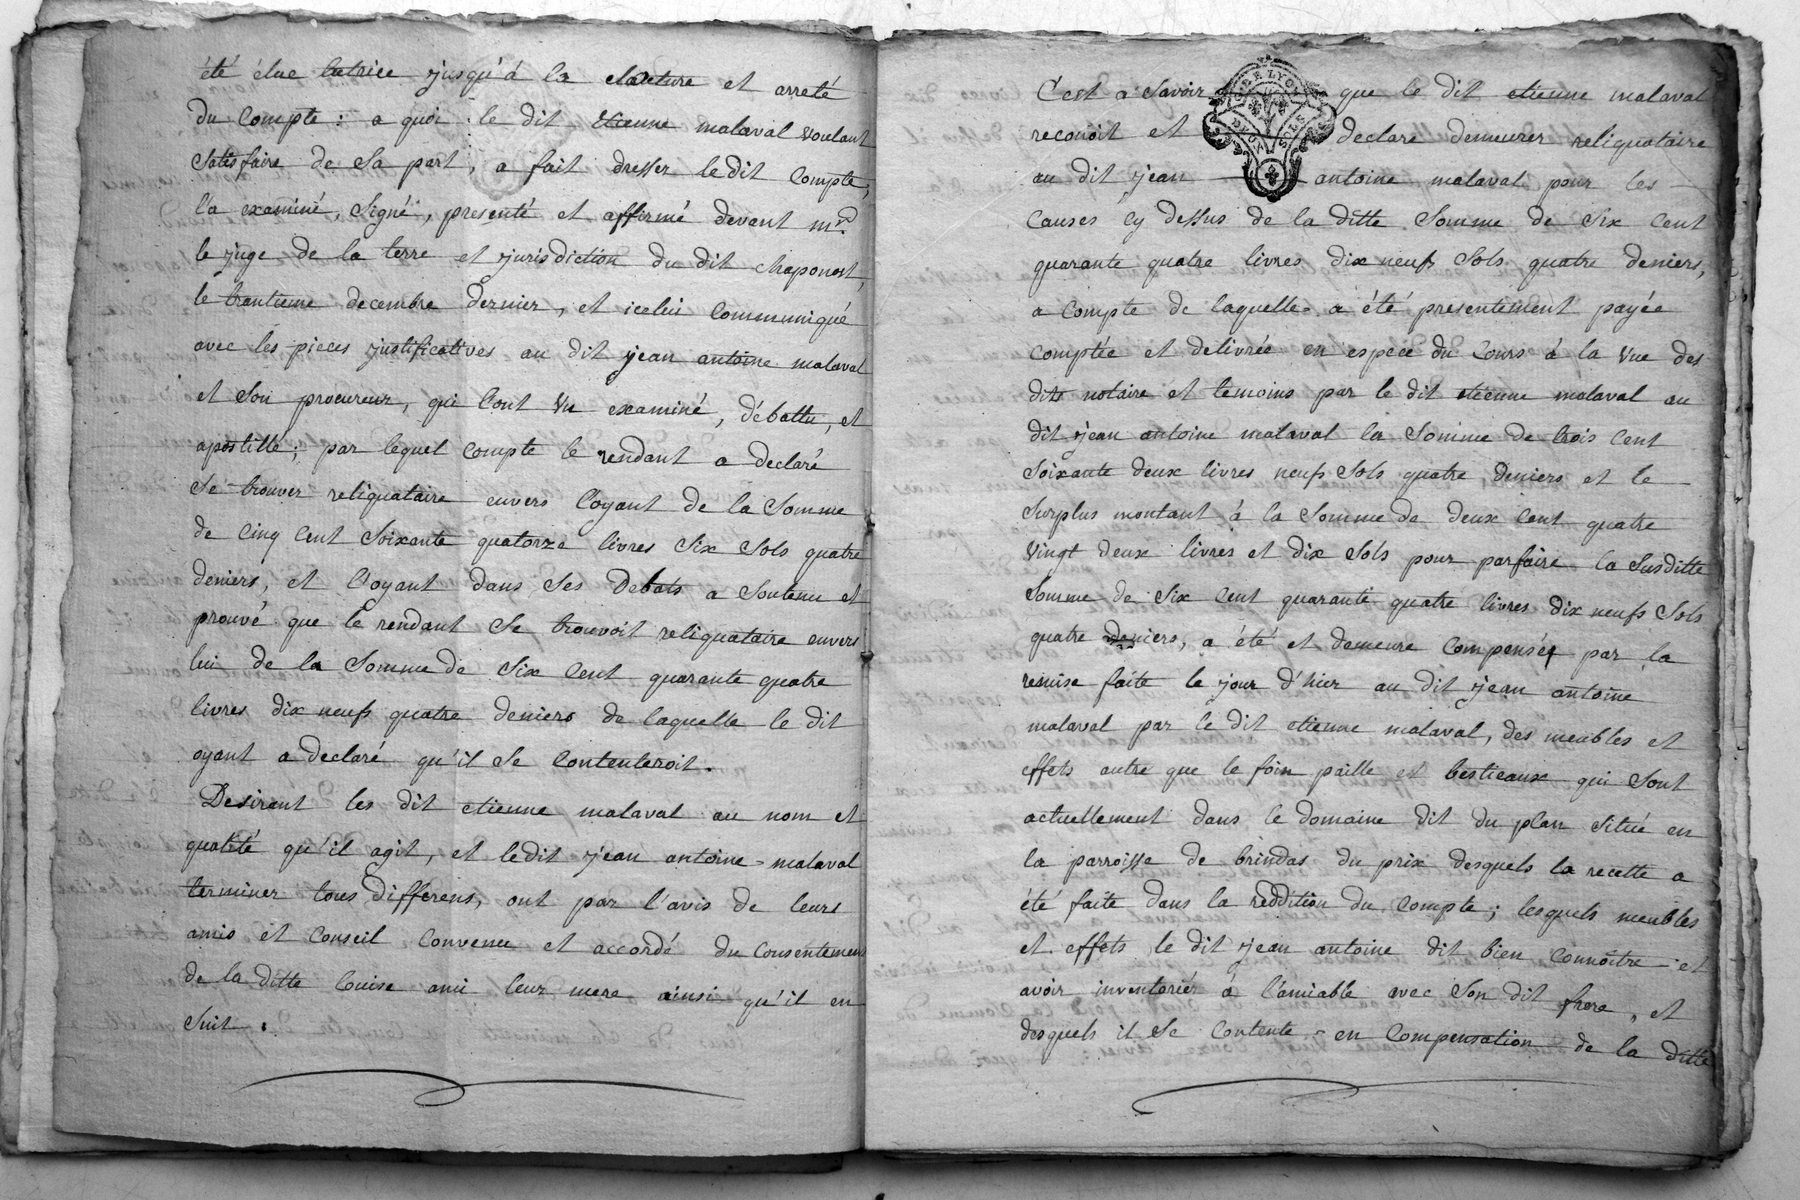 été élue tutrice jusqu'à la cloeture et arreté
du Compte : a quoi le dit etienne malaval voulant
satisfaire de sa part, a fait dresser ledit Compte,
la examiné, signé, presenté et affirmé devant mr.
le juge de la terre et jurisdiction du dit chaponost,
le trantieme decembre dernier, et icelui Communiqué
avec les pieces justificatives au dit jean antoine malaval
et son procureur, qui l'ont vu examiné, débattu, et
apostille ; par lequel compte le rendant a declaré
se trouver reliquataire envers l'oyant de la somme
de cinq cent soixante quatorze livres six sols quatre
deniers, et l'oyant dans ses Debats a soutenu et
prouvé que le rendant se trouvoit reliquataire envers
lui de la somme de six cent quarante quatre
livres dix neufs quatre deniers de laquelle le dit
oyant a declaré qu'il se contenteroit.
Desirant les dit etienne malaval au nom et
qualité qu'il agit, et ledit jean antoine malaval
terminer tous differens, ont par l'avis de leurs
amis et conseil convenu et accordé du consentement
de la ditte louise ami leur mere ainsi qu'il en
suit.
C'est a savoir que le dit etienne malaval
reconoit et declare demeurer reliquataire
au dit jean antoine malaval pour les
causes cy dessus de la ditte somme de six cent
quarante quatre livres dix neufs sols quatre deniers,
a compte de laquelle a été presentement payée
comptée et delivrée en espece du cours à la vue des
dits notaire et temoins par le dit etienne malaval au
dit jean antoine malaval la somme de trois cent
soixante deux livres neufs sols quatre deniers et le
surplus montant à la somme de deux cent quatre
vingt deux livres et dix sols pour parfaire la susditte
somme de six cent quarante quatre livres dix neufs sols
quatre deniers, a été et demeure compensée par la
remise faite le jour d'hier au dit jean antoine
malaval par le dit etienne malaval, des meubles et
effets autre que le foin paille et bestieaux qui sont
actuellement dans le domaine dit du plan situé en
la parroisse de brindas du prix desquels la recette a
été faite dans la reddition du compte ; lesquels meubles
et effets le dit jean antoine dit bien connoitre et
avoir inventoriér à l'amiable avec son dit frere, et
desquels il se contente en compensation de la ditte